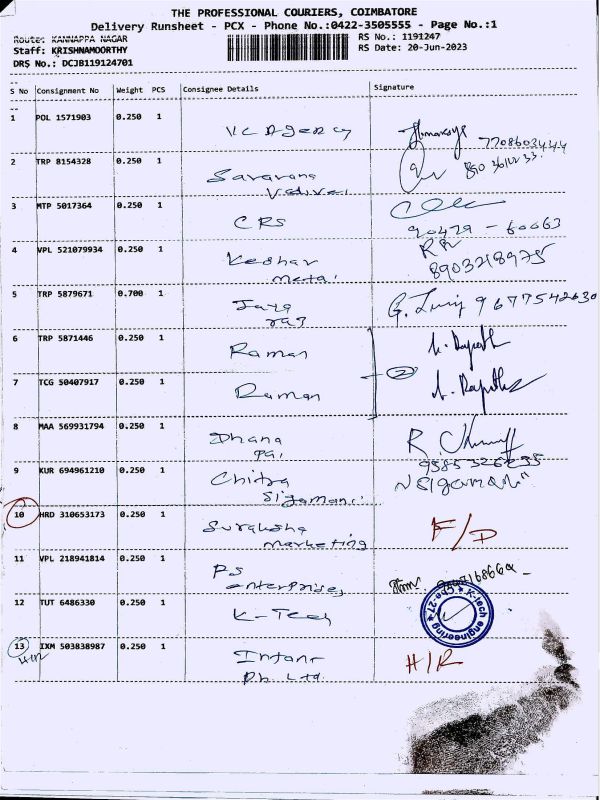 THE PROFESSIONAL COURIERS, COIMBATORE
Delivery Runsheet - PCX - Phone No.:0422-3505555 - Page No.:1
Route: KANNAPPA NAGAR
RS No.: 1191247
Staff: KRISHNAMOORTHY
RS Date: 20-Jun-2023
DRS No.: DCJB119124701
S No Consignment No Weight PCS Consignee Details Signature
1 POL 1571903 0.250 1 V.C Agency 7708603444
2 TRP 8154328 0.250 1 Saravana
3 MTP 5017364 0.250 1 CRS
90479 - 60063
4 VPL 521079934 0.250 1 Keshav RR
8903218975
5 TRP 5879671 0.700 1 Jaya 9677542630
raj
6 TRP 5871446 0.250 1 Raman
2
7 TCG 50407917 0.250 1 Raman
8 MAA 569931794 0.250 1 Dhana
Pai
9 KUR 694961210 0.250 1 Chitra
Sigamani
10 HRD 310653173 0.250 1 Suraksha F/D
marketing
11 VPL 218941814 0.250 1 PS
enterprises
12 TUT 6486330 0.250 1 K-Tech
K-tech engineering
Cbe-27
13 IXM 503838987 0.250 1 H/R